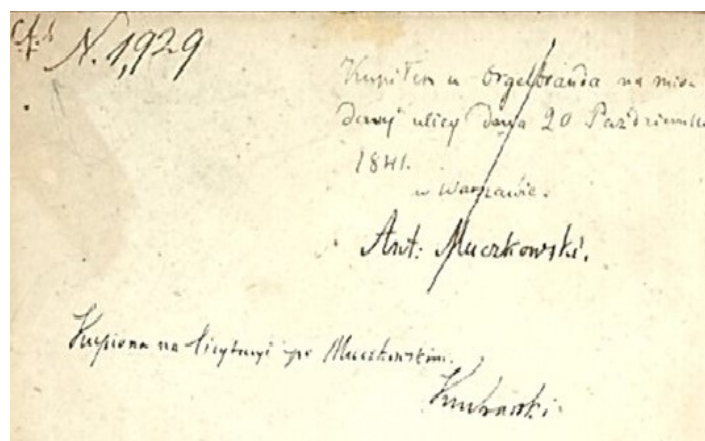 N. 1,929
Kupiłem u Orgelbranda na mio
dowej ulicy dnia 20 Października
1841.
w Warszawie.
Ant: Muczkowski.
Kupiona na licytacyi po Muczkowskim.